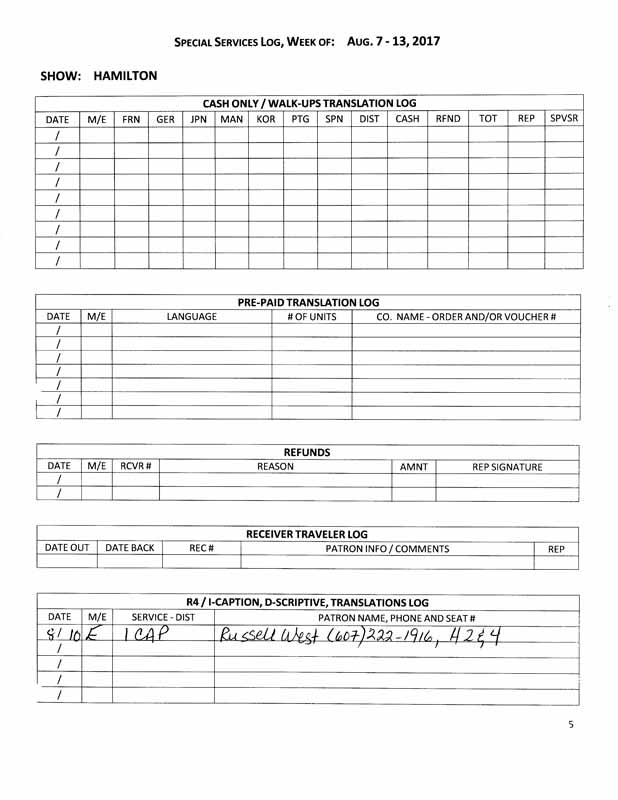 SPECIAL SERVICES LOG, WEEK OF: AUG. 7 - 13, 2017
SHOW: HAMILTON
CASH ONLY / WALK-UPS TRANSLATION LOG
DATE M/E FRN GER JPN MAN KOR PTG SPN DIST CASH RFND TOT REP SPVSR
/
/
/
/
/
/
/
/
/
PRE-PAID TRANSLATION LOG
DATE M/E LANGUAGE # OF UNITS CO. NAME - ORDER AND/OR VOUCHER #
/
/
/
/
/
/
/
REFUNDS
DATE M/E RCVR # REASON AMNT REP SIGNATURE
/
/
RECEIVER TRAVELER LOG
DATE OUT DATE BACK REC # PATRON INFO / COMMENTS REP
R4 / I-CAPTION, D-SCRIPTIVE, TRANSLATIONS LOG
DATE M/E SERVICE - DIST PATRON NAME, PHONE AND SEAT #
8/ 10 E I CAP Russell West (607)222-1916, H2&4
/
/
/
/
5